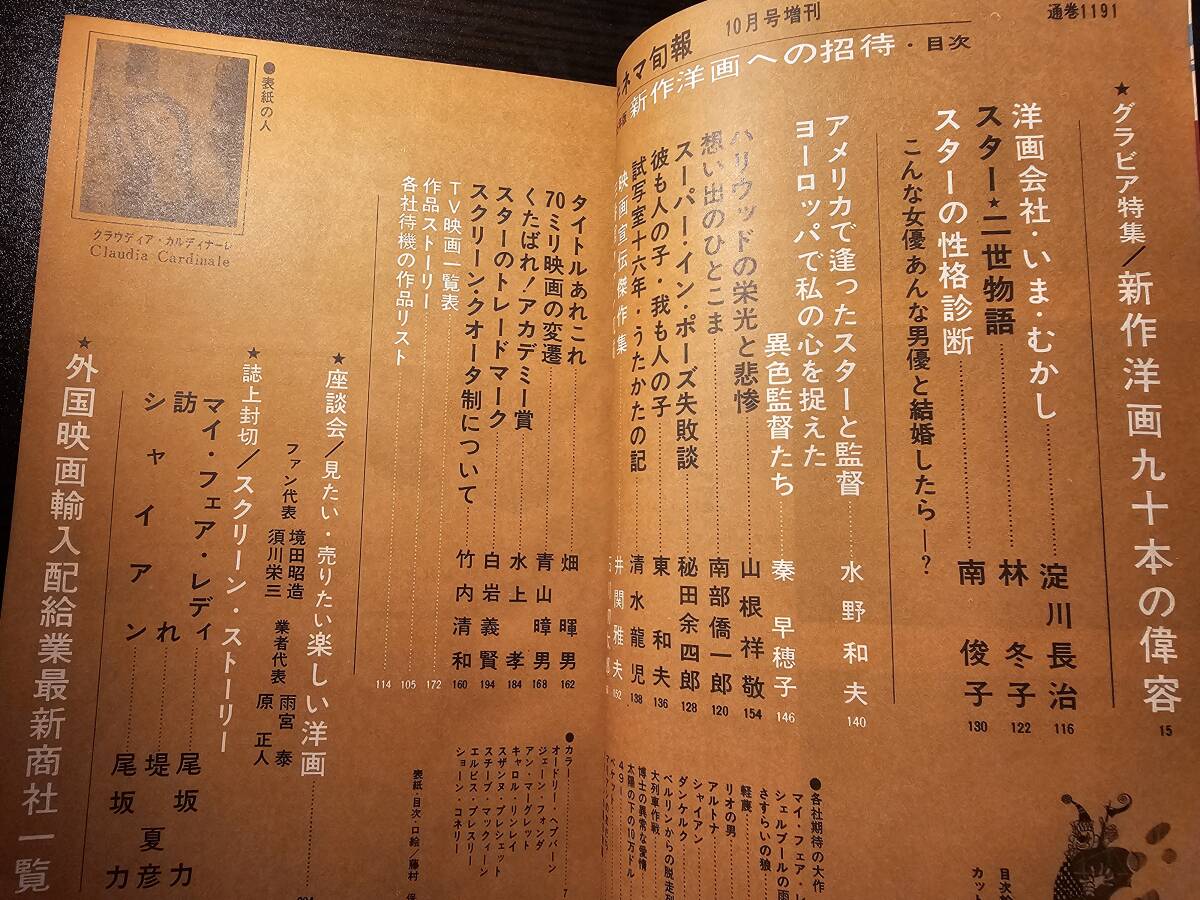 通巻1191
ネマ旬報 10月号増刊
新作洋画への招待・目次
★グラビア特集/新作洋画九十本の偉容 15
洋画会社・いま・むかし 淀川長治 116
スター★二世物語 林冬子 122
スターの性格診断
こんな女優あんな男優と結婚したら―? 南俊子 130
アメリカで逢ったスターと監督 水野和夫 140
ヨーロッパで私の心を捉えた
異色監督たち 秦早穂子 146
ハリウッドの栄光と悲惨 山根祥敬 154
想い出のひとこま 南部僑一郎 120
スーパー・イン・ポーズ失敗談 秘田余四郎 128
彼も人の子・我も人の子 東和夫 136
試写室十六年・うたかたの記 清水龍児 138
映画宣伝傑作集 井関雅夫 152
●各社期待の大作
マイ・フェア・レ
シェルブールの雨
さすらいの狼
軽蔑
リオの男
アルトナ
シャイアン
ダンケルク
ベルリンからの脱走列
大列車作戦
博士の異常な愛情
太陽の下の10万ドル
49
ベケット
カット
タイトルあれこれ 畑暉男 162
70ミリ映画の変遷 青山暲男 168
くたばれ!アカデミー賞 水上孝 184
スターのトレードマーク 白岩義賢 194
スクリーン・クオータ制について 竹内清和 160
TV映画一覧表 172
作品ストーリー 105
各社待機の作品リスト 114
●カラー
オードリー・ヘプバーン
ジェーン・フォンダ
アン・マーグレット
キャロル・リンレイ
スザンヌ・プレシェット
スチーブ・マックィーン
エルビス・プレスリー
ショーン・コネリー
7
表紙・目次・口絵/藤村
●表紙の人
クラウディア・カルディナーレ
Claudia Cardinale
★座談会/見たい・売りたい楽しい洋画
ファン代表 境田昭造 須川栄三 業者代表 雨宮泰 原正人
★誌上封切/スクリーン・ストーリー
マイ・フェア・レディ 尾坂力
訪れ 堤夏彦
シャイアン 尾坂力
★外国映画輸入配給業最新商社一覧